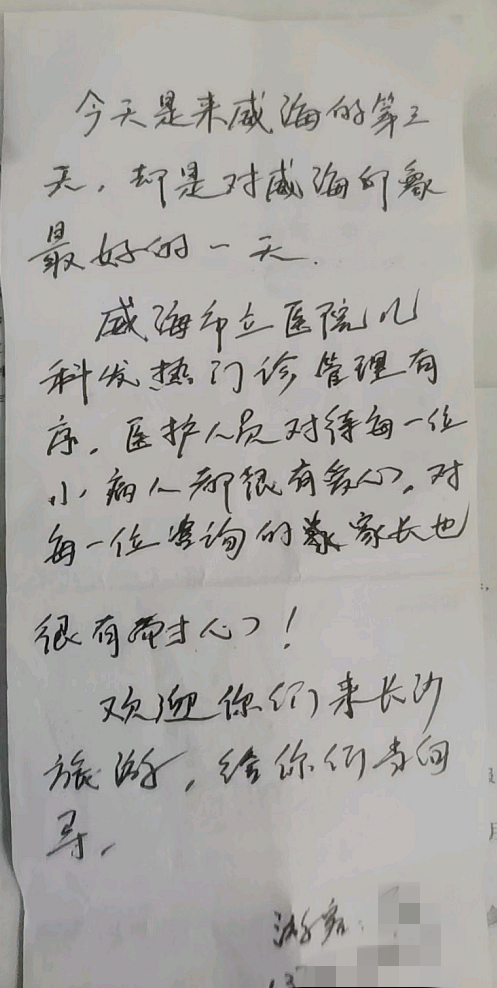 今天是来威海的第三
天，却是对威海印象
最好的一天.
威海市立医院儿
科发热门诊管理有
序，医护人员对待每一位
小病人都很有爱心，对
每一位咨询的家长也
很有耐心！
欢迎你们来长沙
旅游，给你们当向
导，
游客：